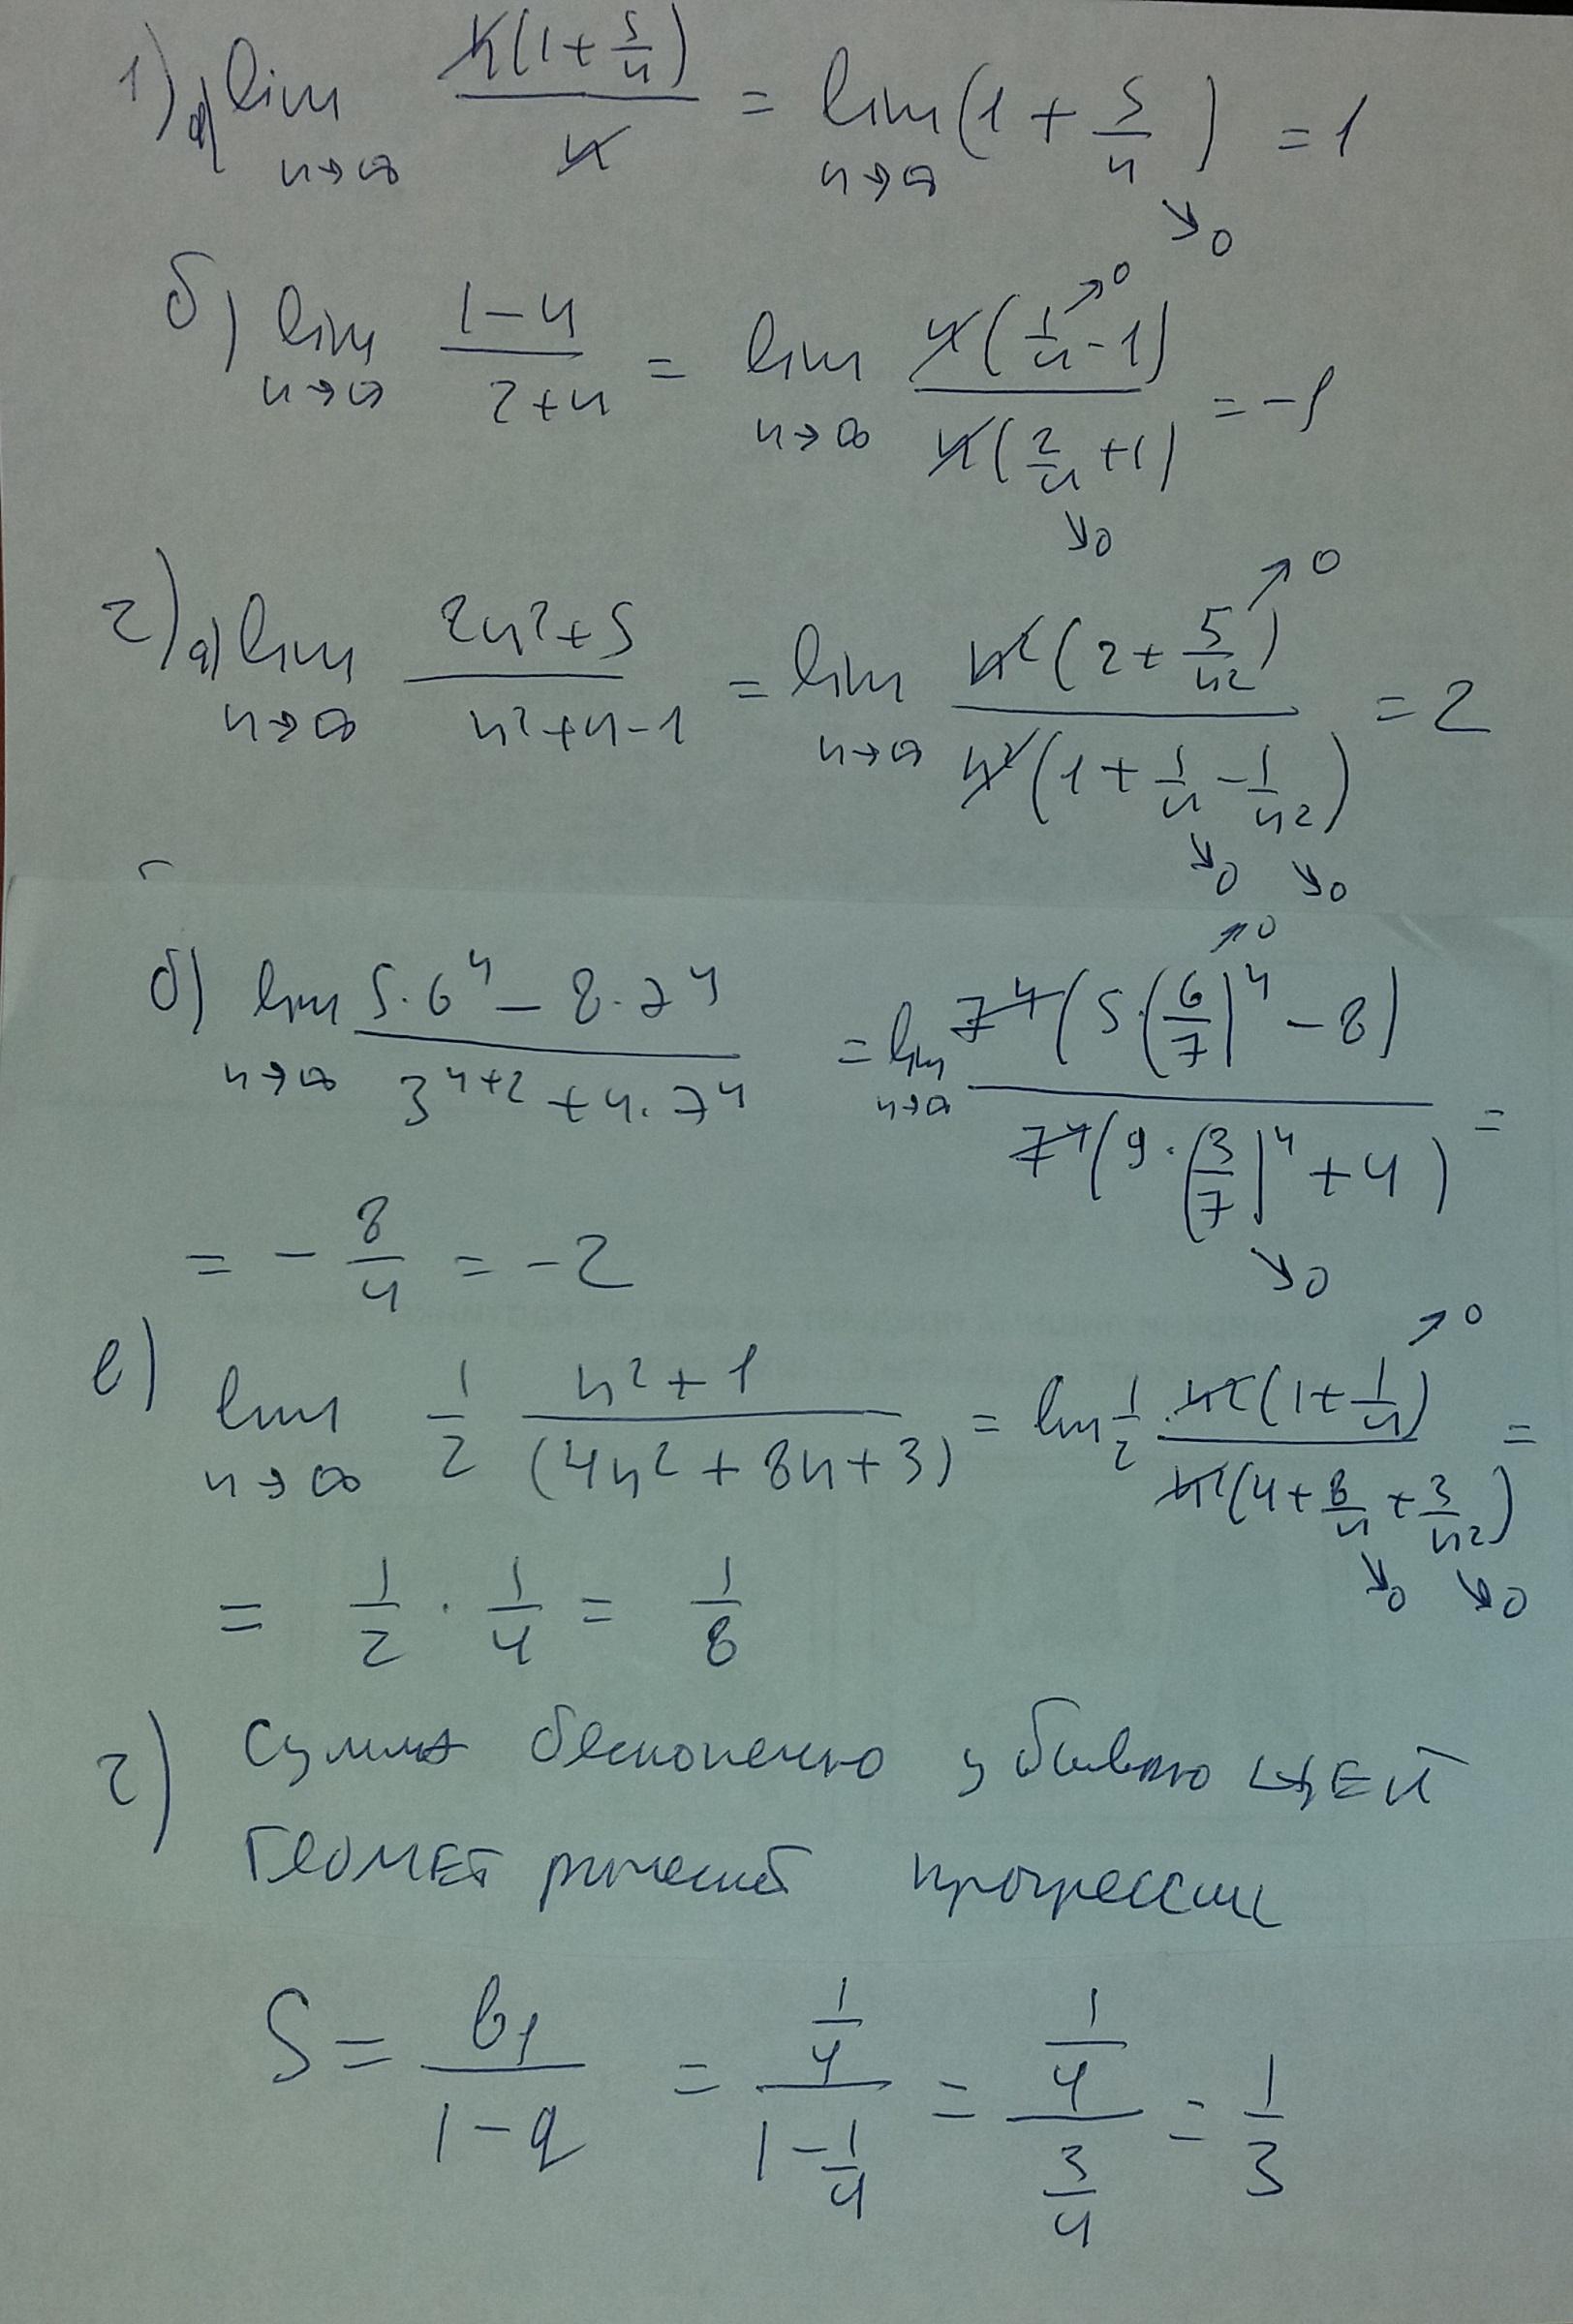 1) а) lim n→∞ n(1+5/n)/n = lim n→∞ (1+5/n) = 1
↘0
б) lim n→∞ (1-n)/(2+n) = lim n→∞ n(1/n-1)/n(2/n+1) = -1
↗0
↘0
2) а) lim n→∞ (2n²+5)/(n²+n-1) = lim n→∞ n²(2+5/n²)/n²(1+1/n-1/n²) = 2
↗0
↘0 ↘0
б) lim n→∞ (5·6ⁿ-8·7ⁿ)/(3ⁿ⁺²+4·7ⁿ) = lim n→∞ 7ⁿ(5·(6/7)ⁿ-8)/7ⁿ(9·(3/7)ⁿ+4) =
↗0
↘0
= -8/4 = -2
в) lim n→∞ 1/2 (n²+1)/(4n²+8n+3) = lim 1/2 · n²(1+1/n)/n²(4+8/n+3/n²) =
↗0
↘0 ↘0
= 1/2 · 1/4 = 1/8
г) Сумма бесконечно убывающей
геометрической прогрессии
S = b₁/(1-q) = (1/4)/(1-1/4) = (1/4)/(3/4) = 1/3